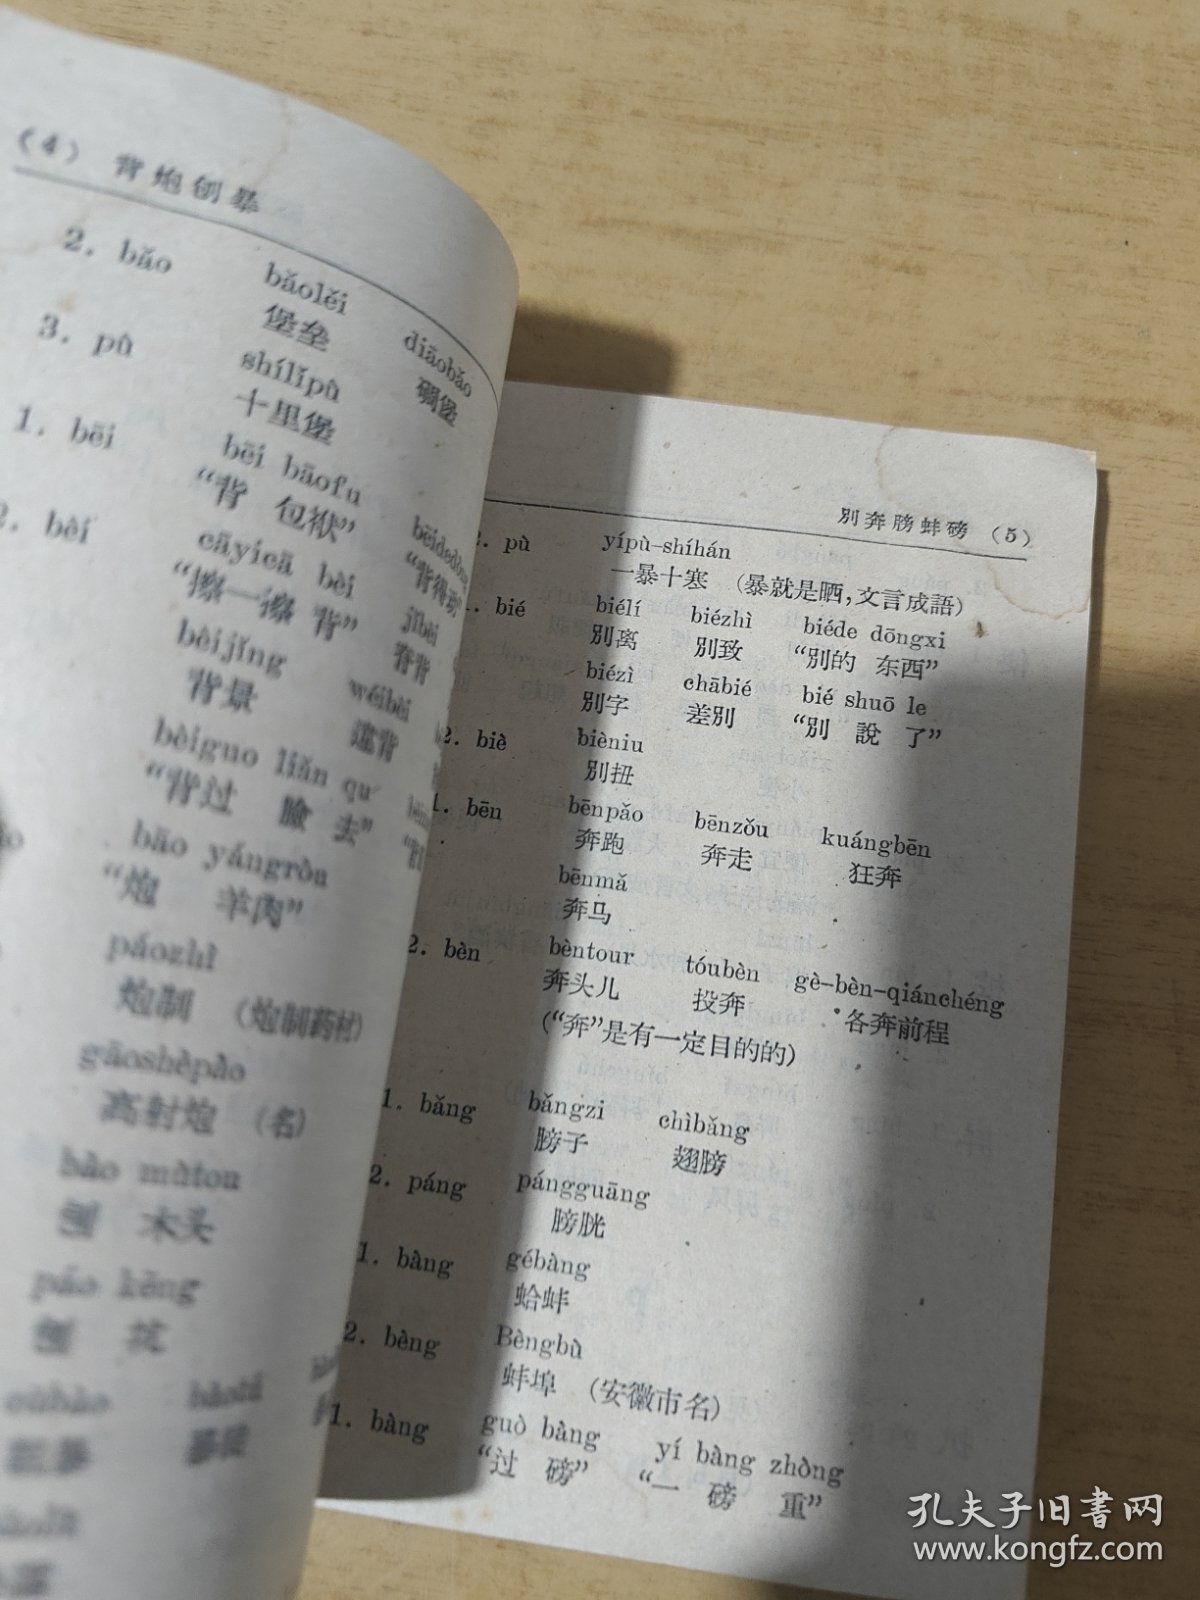 (4) 背炮刨暴
2. bǎo bǎolěi diāobǎo
堡垒 碉堡
3. pù shílǐpù
十里堡
1. bēi bēi bāofu bēidedòng
“背 包袱” “背得动”
2. bèi cāyicā bèi jǐbèi
“擦一擦 背” 脊背
bèijǐng wéibèi
背景 違背
bèiguo liǎn qu
“背过 臉 去”
bāo yángròu
“炮 羊肉”
páozhì
炮制 (炮制药材)
gāoshèpào
高射炮 (名)
bào mùtou
刨 木头
páo kēng
刨 坑
別奔膀蚌磅 (5)
2. pù yípù-shíhán
一暴十寒 (暴就是晒,文言成語)
1. bié biélí biézhì biéde dōngxi
別离 別致 “別的 东西”
biézì chābié bié shuō le
別字 差別 “別 說 了”
2. biè bièniu
別扭
1. bēn bēnpǎo bēnzǒu kuángbēn
奔跑 奔走 狂奔
bēnmǎ
奔马
2. bèn bèntour tóubèn gè-bèn-qiánchéng
奔头儿 投奔 各奔前程
(“奔”是有一定目的的)
1. bǎng bǎngzi chìbǎng
膀子 翅膀
2. páng pángguāng
膀胱
1. bàng gébàng
蛤蚌
2. bèng Bèngbù
蚌埠 (安徽市名)
1. bàng guò bàng yí bàng zhòng
“过 磅” “一 磅 重”
孔夫子旧書网
www.kongfz.com